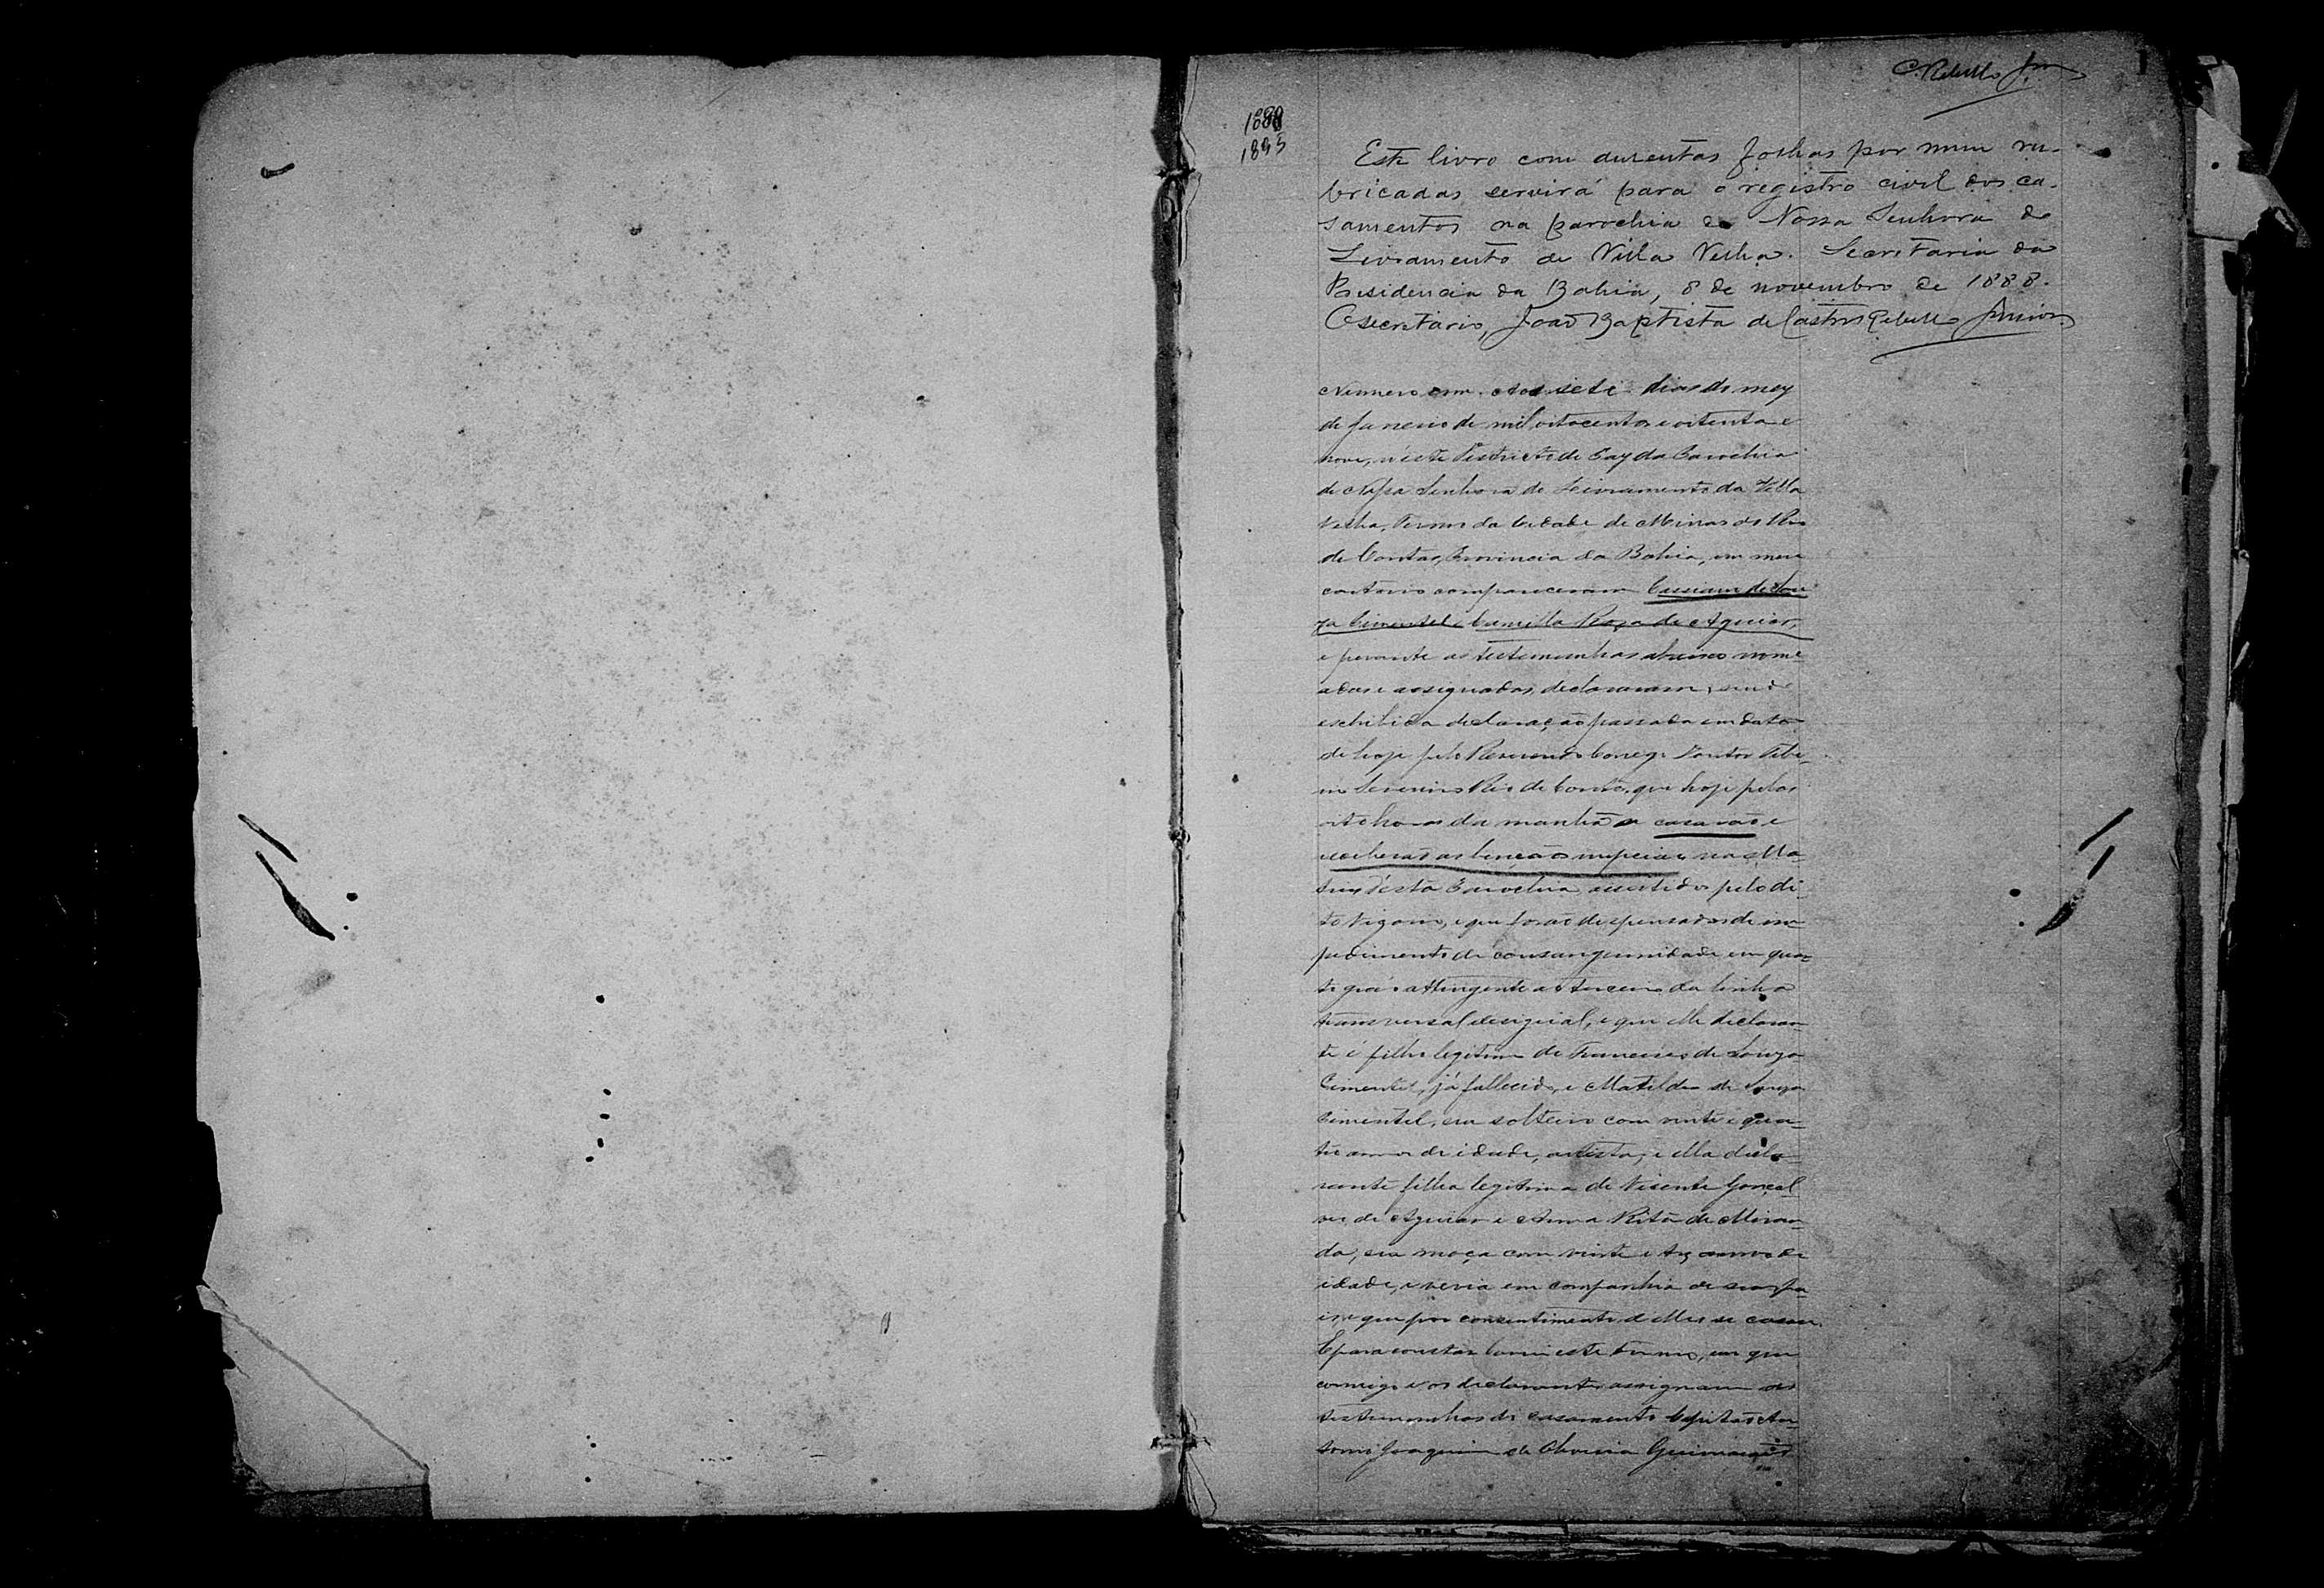 C. Rebello Jor
1
1889
1895
Este livro com duzentas folhas por mim ru-
bricadas servirá para o registro civil dos ca-
samentos na parochia de Nossa Senhora do
Livramento de Villa Velha. Secretaria da
Presidencia da Bahia, 8 de novembro de 1888.
O secretario, João Baptista de Castro Rebello Junior
Numero um. Aos sete dias do mez
de Janeiro de mil oitocentos e oitenta e
nove, n'este Districto de Paz da Parochia
de Nossa Senhora do Livramento da Villa
Velha, Termo da Cidade de Minas do Rio
de Contas, Provincia da Bahia, em meu
cartorio compareceram de Sou
za Pimentel e Camilla Roza de Aguiar,
e perante as testemunhas abaixo nome-
adas e assignadas, declararam, sendo
exhibida declaração passada em data
de hoje pelo Reverendo Conego Doutor Tibe-
rio Severino Rio de Contas, que hoje pelas
oito horas da manhã se casarão e
receberão as bençãos nupciaes na Ma-
triz d'esta Parochia, assistidos pelo di-
to Vigario, e que forão dispensados de im-
pedimento de consanguinidade em quar-
to gráo attingente ao terceiro da linha
transversal desigual, e que elle declaran-
te é filho legitimo de Francisco de Souza
Pimentel, já fallecido, e Matildes de Souza
Pimentel, era solteiro com vinte e qua-
tro annos de idade, artista, e ella decla-
rante filha legitima de Vicente Gonçal-
ves de Aguiar e Anna Rita de Miran-
da, era moça com vinte e trez annos de
idade, e vivia em companhia de seus pa-
is e que por consentimento d'elles se casou.
E para constar lavrei este termo, em que
comigo e os declarantes assignam as
testemunhas do casamento Capitão An-
tonio Joaquim de Oliveira Guimarães